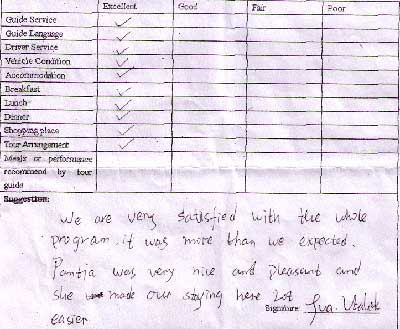 Excellent Good Fair Poor
Guide Service
Guide Language
Driver Service
Vehicle Condition
Accommodation
Breakfast
Lunch
Dinner
Shopping place
Tour Arrangement
Meals or performance
recommend by tour
guide
Suggestion:
We are very satisfied with the whole
program. it was more than we expected.
was very nice and pleasant and
she made our staying here lot
Signature
easier